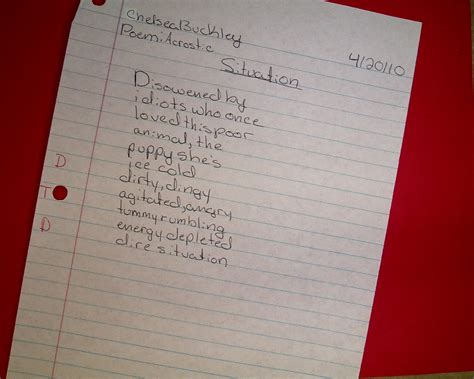 Chelsea Buckley
Poem: Acrostic
4/20/10
Situation
Disowened by
idiots who once
loved this poor
animal, the
puppy she's
ice cold
dirty, dingy
agitated, angry
tummy rumbling
energy depleted
dire situation
D
T
D